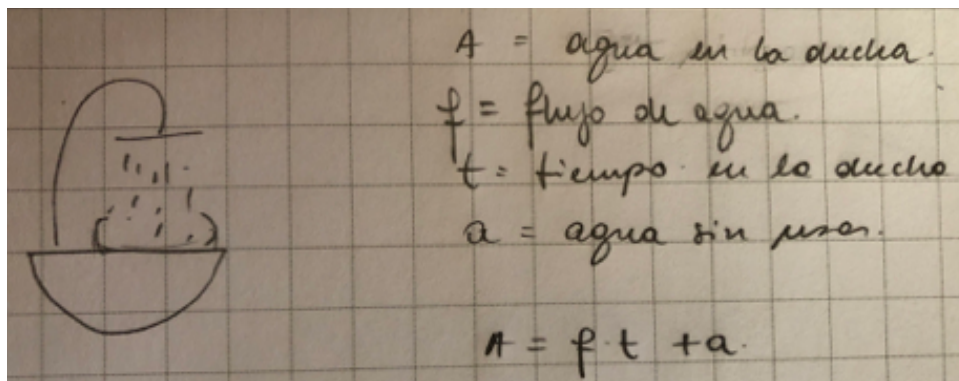 A = agua en la ducha.
f = flujo de agua.
t = tiempo en la ducha
a = agua sin usar.
A = f·t + a.